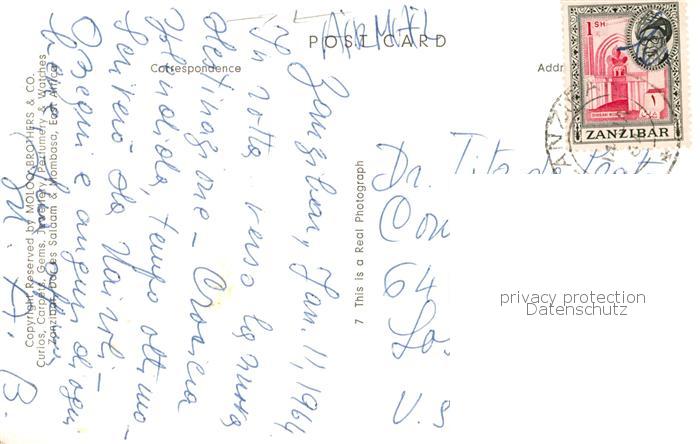 AIR MAIL
POST CARD
Correspondence
Addr
1 SH.
ZANZIBAR
Zanzibar, Jan. 11, 1964
In rotta verso la nuova
destinazione - Crociera
splendida, tempo ottimo -
Scriverò da Nairobi -
Ossequi e auguri di ogni
Copyright Reserved by MOLOO BROTHERS & CO.
Curios, Carpets, Gems, Jewellery, Perfumery & Watches
Zanzibar, Dar es Salaam & Mombasa, East Africa.
7 This is a Real Photograph
Dr. Tito
Con
64
Lo
U.S
privacy protection
Datenschutz